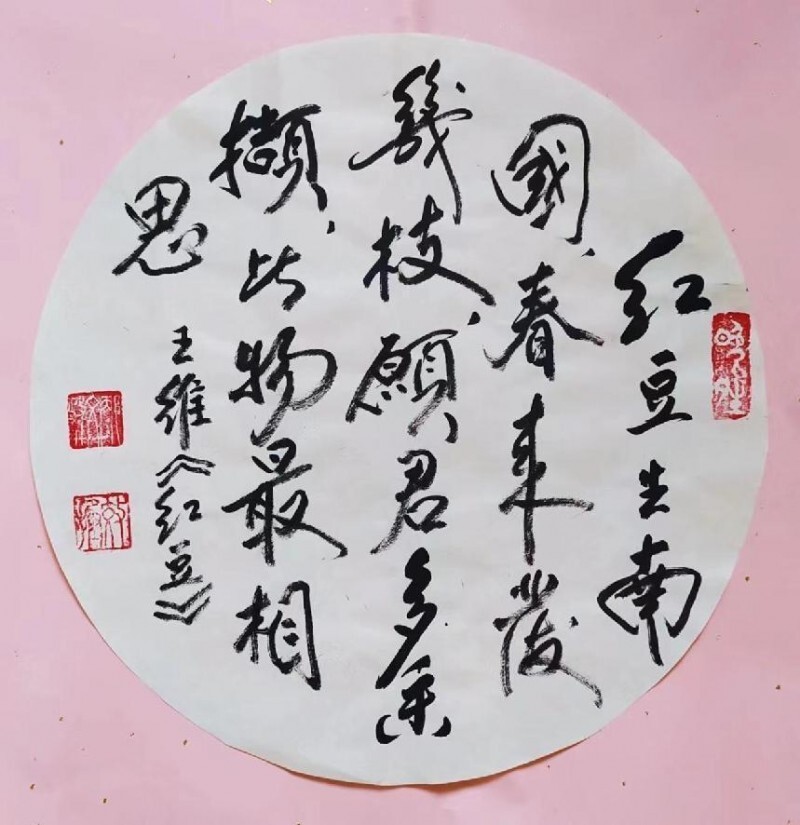 红豆生南
國春来發
幾枝願君多采
擷此物最相
思
王維《红豆》